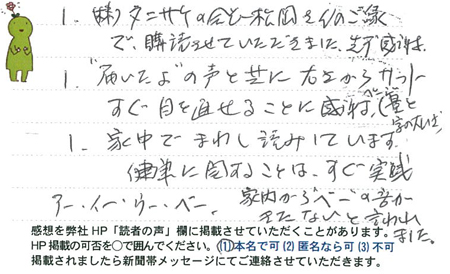 1. (株)タニサケの会と松岡さんのご縁
で、購読させていただきました。先ず感謝。
1. "届いたよ"の声と共に右左からサット
すぐ目を通せることに感謝。(妻と
1. 家中でまわし読みしています。
健康に関することは、すぐ実践
アー・イー・ウー・ベー。家内から"ベー"の音が
きたないと言われました。
感想を弊社HP「読者の声」欄に掲載させていただくことがあります。
HP掲載の可否を○で囲んでください。(1)本名で可 (2) 匿名なら可 (3) 不可
掲載されましたら新聞帯メッセージにてご連絡させていただきます。